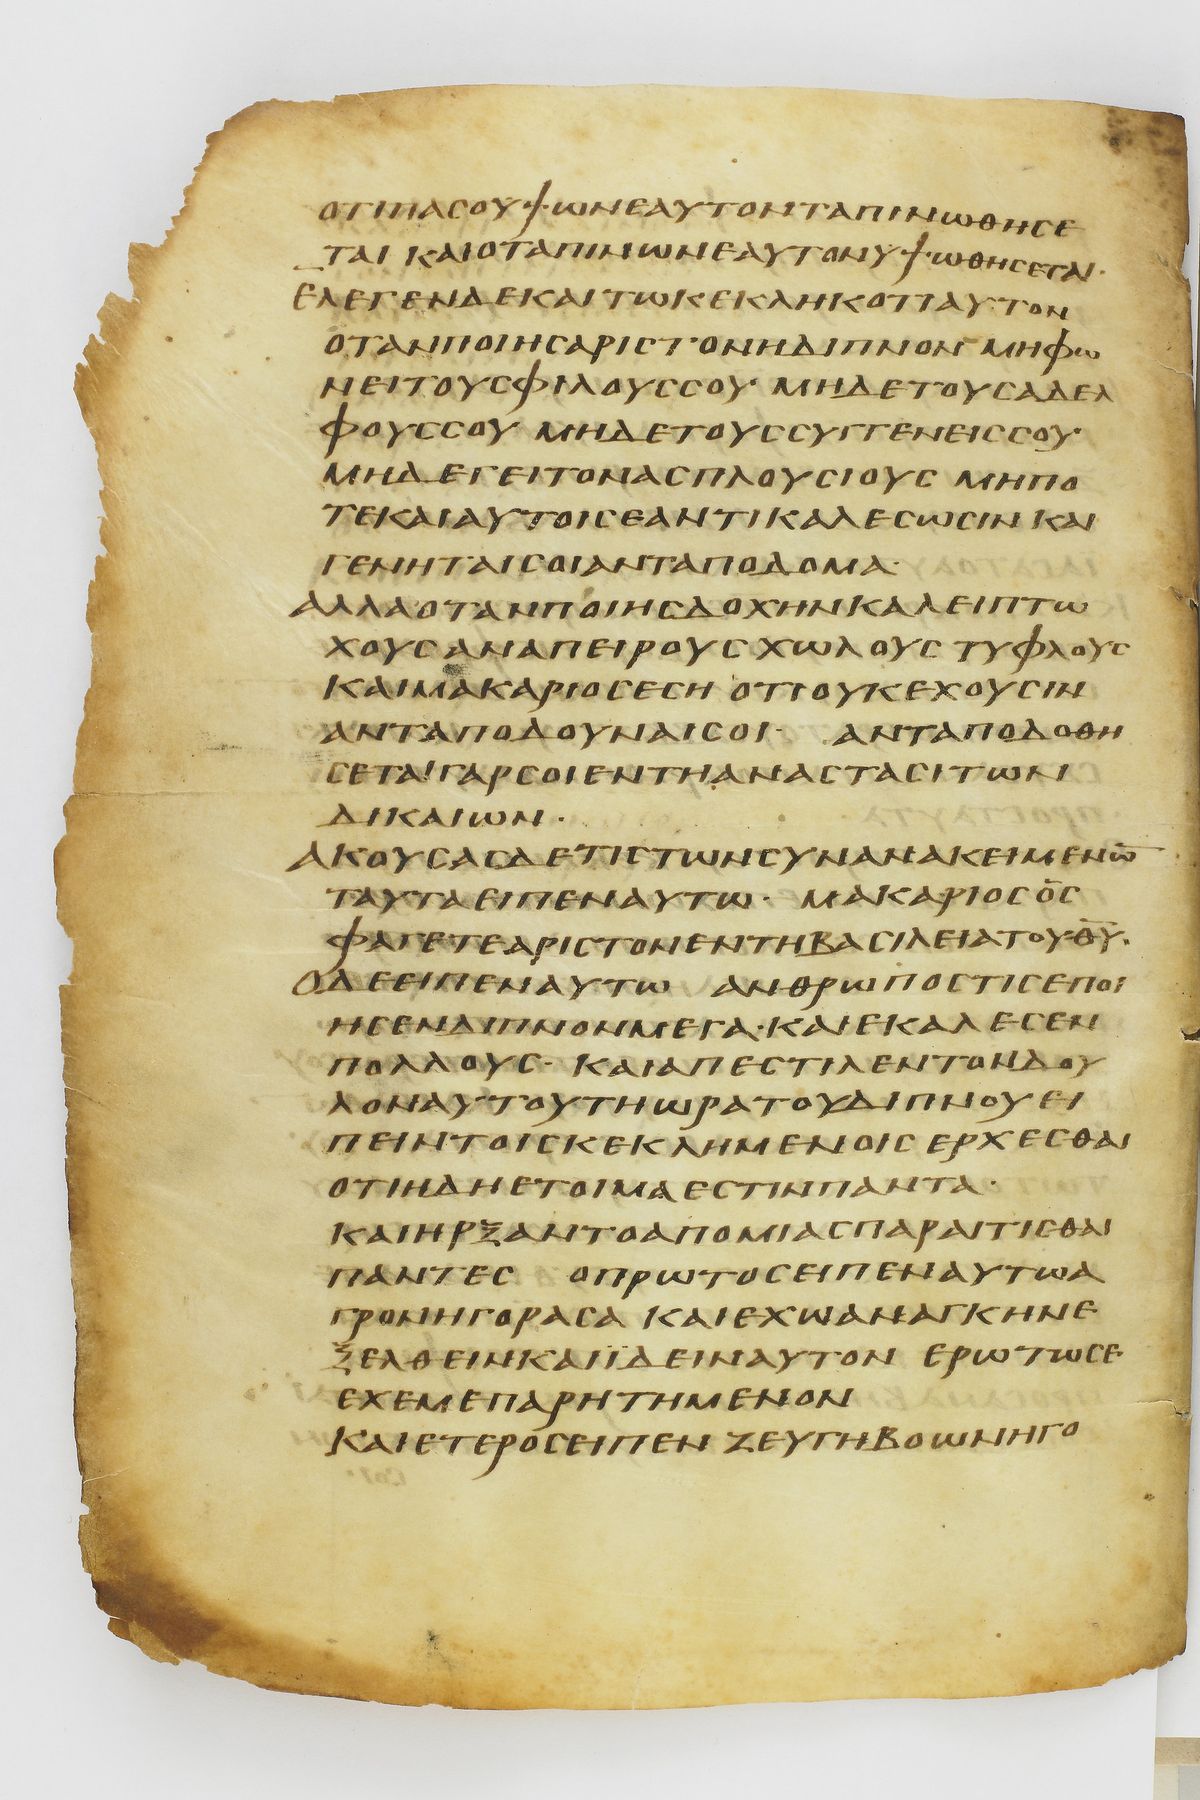 ΟΤΙΠΑСΟΥΨΩΝΕΑΥΤΟΝΤΑΠΙΝΩΘΗСΕ
ΤΑΙ ΚΑΙΟΤΑΠΙΝΩΝΕΑΥΤΟΝΥΨΩΘΗСΕΤΑΙ·
ΕΛΕΓΕΝΔΕΚΑΙΤΩΚΕΚΛΗΚΟΤΙΑΥΤΟΝ
ΟΤΑΝΠΟΙΗСΑΡΙСΤΟΝΗΔΙΠΝΟΝ ΜΗΦΩ
ΝΕΙΤΟΥСΦΙΛΟΥССΟΥ· ΜΗΔΕΤΟΥСΑΔΕΛ
ΦΟΥССΟΥ ΜΗΔΕΤΟΥССΥΓΓΕΝΕΙССΟΥ·
ΜΗΔΕΓΕΙΤΟΝΑСΠΛΟΥСΙΟΥС ΜΗΠΟ
ΤΕΚΑΙΑΥΤΟΙСΕΑΝΤΙΚΑΛΕСΩСΙΝ ΚΑΙ
ΓΕΝΗΤΑΙСΟΙΑΝΤΑΠΟΔΟΜΑ·
ΑΛΛΑΟΤΑΝΠΟΙΗСΔΟΧΗΝΚΑΛΕΙΠΤΩ
ΧΟΥСΑΝΑΠΕΙΡΟΥС ΧΩΛΟΥС ΤΥΦΛΟΥС
ΚΑΙΜΑΚΑΡΙΟСΕСΗ ΟΤΙΟΥΚΕΧΟΥСΙΝ
ΑΝΤΑΠΟΔΟΥΝΑΙСΟΙ· ΑΝΤΑΠΟΔΟΘΗ
СΕΤΑΙΓΑΡСΟΙΕΝΤΗΑΝΑСΤΑСΙΤΩΝ
ΔΙΚΑΙΩΝ·
ΑΚΟΥСΑСΔΕΤΙСΤΩΝСΥΝΑΝΑΚΕΙΜΕΝΩ̅
ΤΑΥΤΑΕΙΠΕΝΑΥΤΩ· ΜΑΚΑΡΙΟСΟС
ΦΑΓΕΤΕΑΡΙСΤΟΝΕΝΤΗΒΑСΙΛΕΙΑΤΟΥΘ̅Υ̅·
ΟΔΕΕΙΠΕΝΑΥΤΩ ΑΝΘΡΩΠΟСΤΙСΕΠΟΙ
ΗСΕΝΔΙΠΝΟΝΜΕΓΑ· ΚΑΙΕΚΑΛΕСΕΝ
ΠΟΛΛΟΥС· ΚΑΙΑΠΕСΤΙΛΕΝΤΟΝΔΟΥ
ΛΟΝΑΥΤΟΥΤΗΩΡΑΤΟΥΔΙΠΝΟΥ ΕΙ
ΠΕΙΝΤΟΙСΚΕΚΛΗΜΕΝΟΙС ΕΡΧΕСΘΑΙ
ΟΤΙΗΔΗΕΤΟΙΜΑΕСΤΙΝΠΑΝΤΑ·
ΚΑΙΗΡΞΑΝΤΟΑΠΟΜΙΑСΠΑΡΑΙΤΙСΘΑΙ
ΠΑΝΤΕС ΟΠΡΩΤΟСΕΙΠΕΝΑΥΤΩΑ
ΓΡΟΝΗΓΟΡΑСΑ ΚΑΙΕΧΩΑΝΑΓΚΗΝΕ
ΞΕΛΘΕΙΝΚΑΙΪΔΕΙΝΑΥΤΟΝ ΕΡΩΤΩСΕ·
ΕΧΕΜΕΠΑΡΗΤΗΜΕΝΟΝ
ΚΑΙΕΤΕΡΟСΕΙΠΕΝ ΖΕΥΓΗΒΟΩΝΗΓΟ